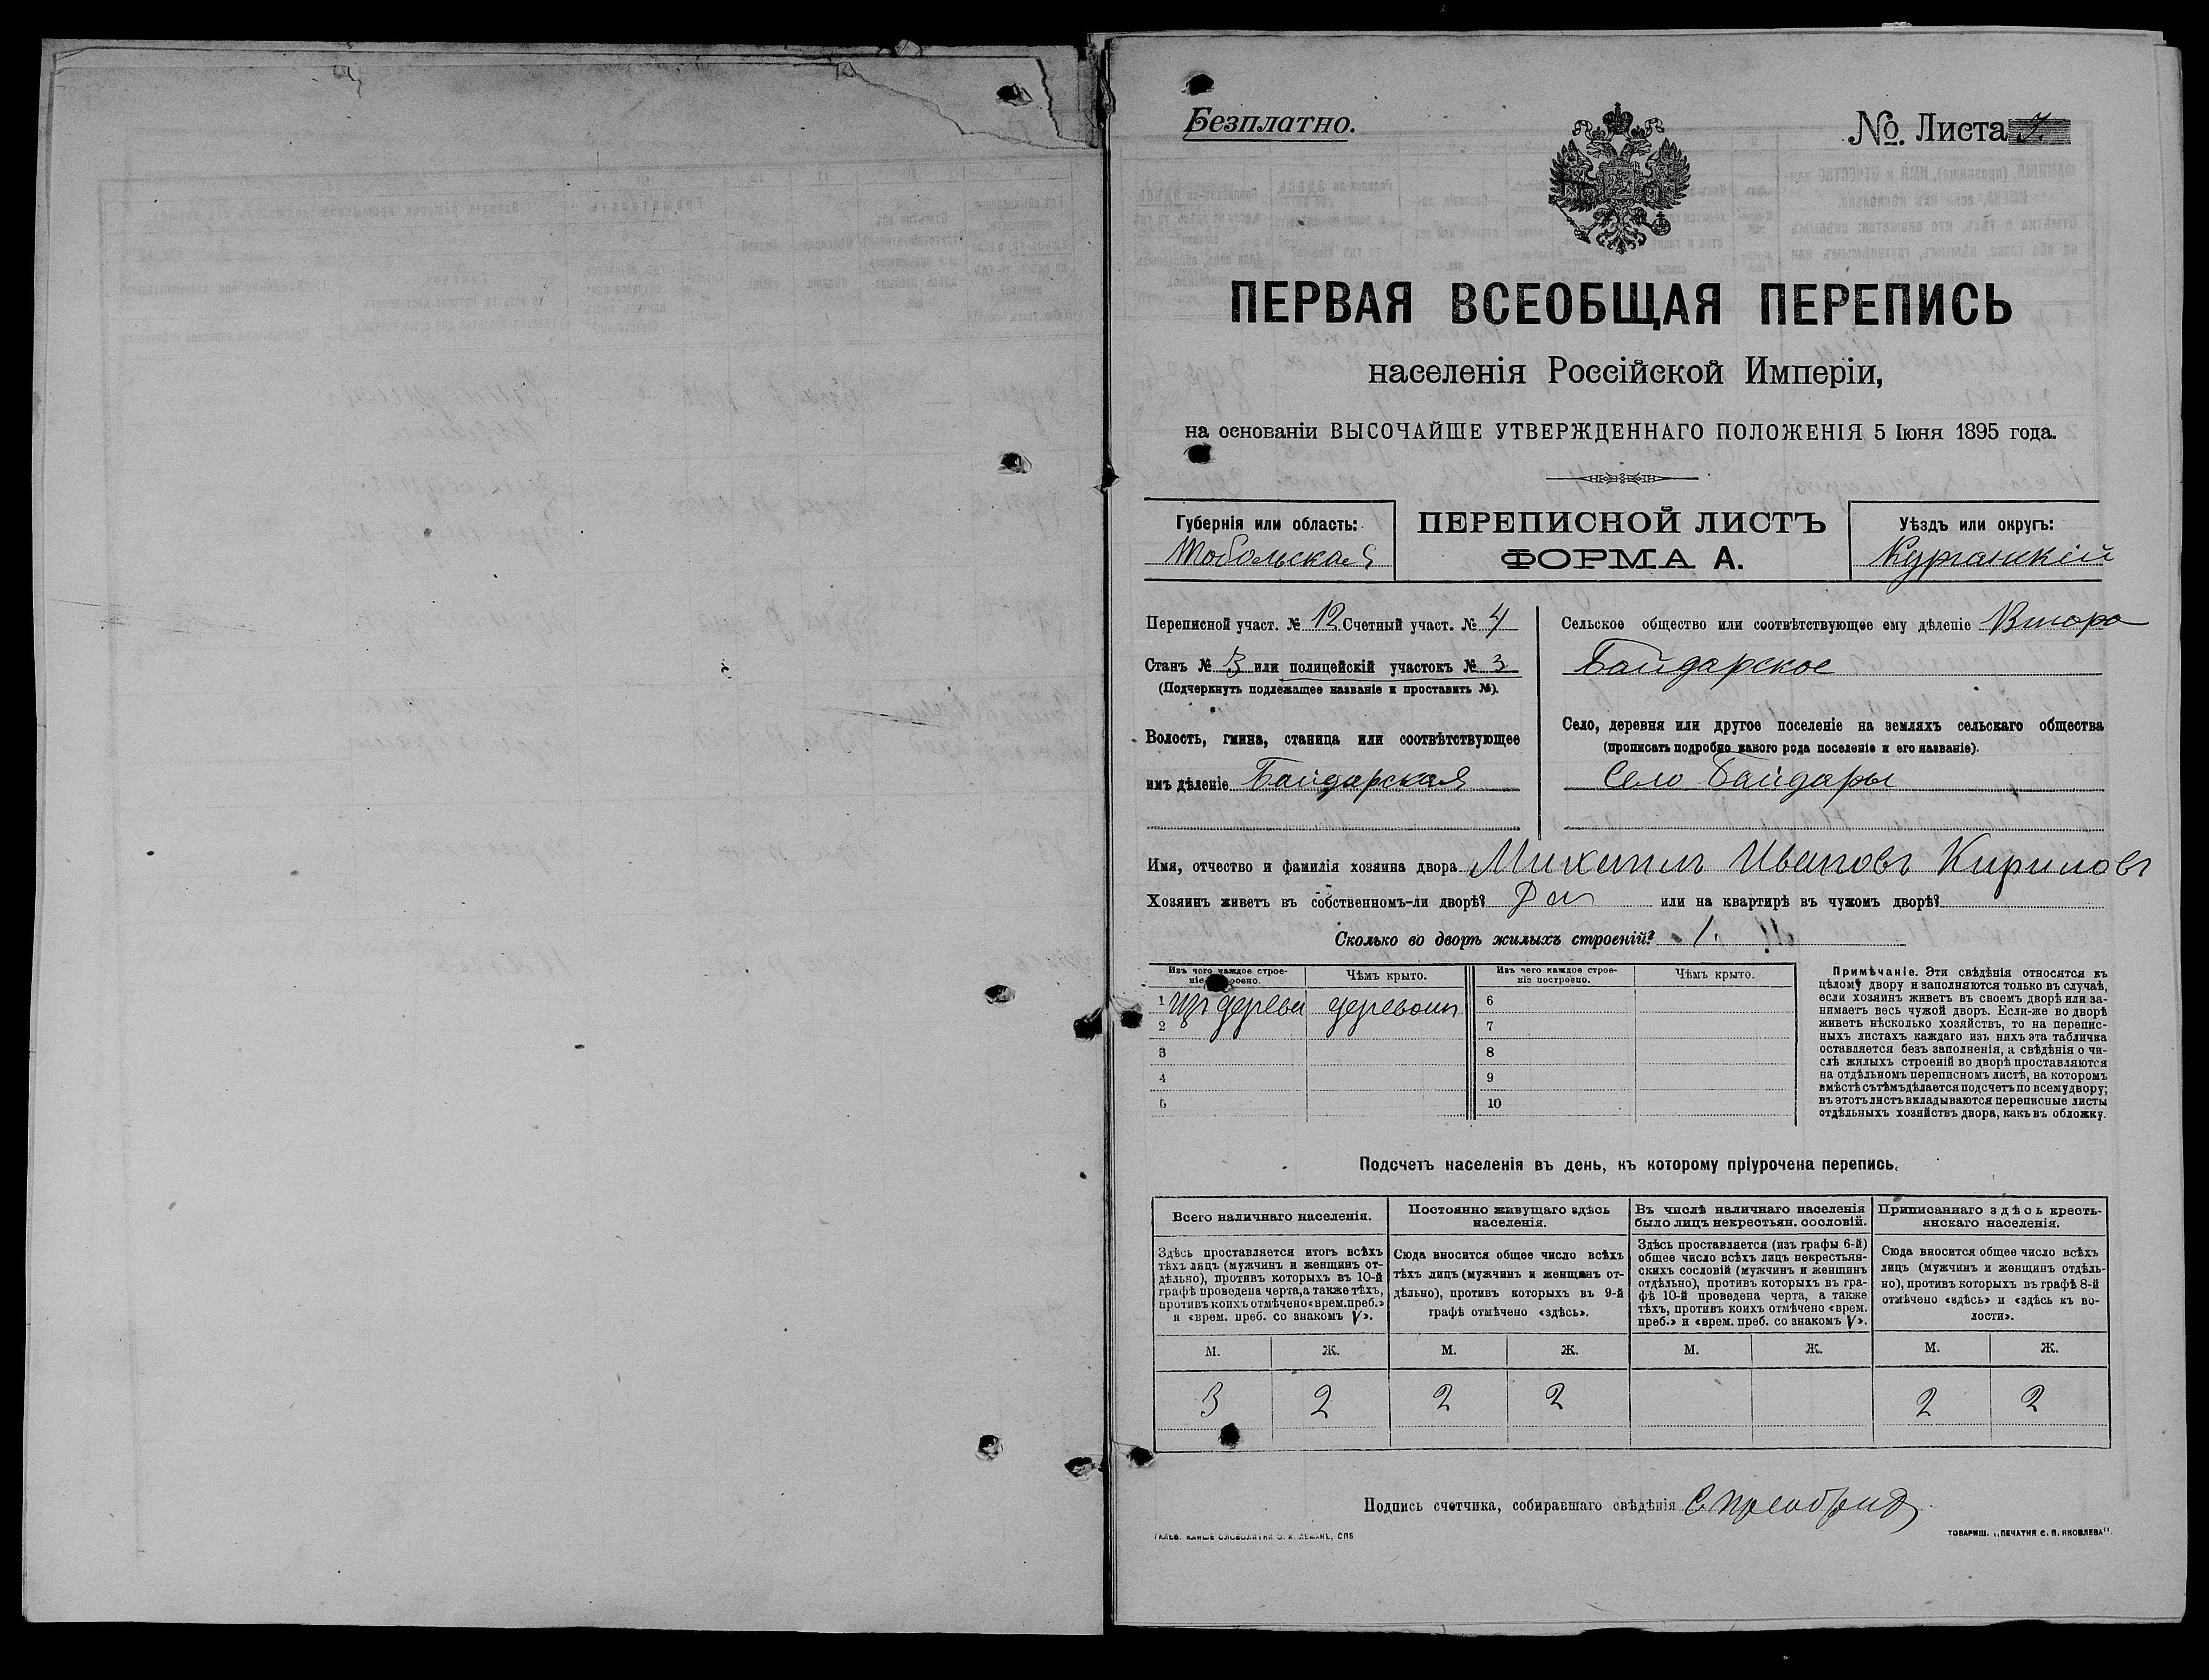 Безплатно.
№. Листа
ПЕРВАЯ ВСЕОБЩАЯ ПЕРЕПИСЬ
населенія Россійской Имперіи,
на основаніи ВЫСОЧАЙШЕ УТВЕРЖДЕННАГО ПОЛОЖЕНІЯ 5 Іюня 1895 года.
Губернія или область:
Тобольская
ПЕРЕПИСНОЙ ЛИСТЪ
ФОРМА А.
Уѣздъ или округъ:
Курганскій
Переписной участ. № 12 Счетный участ. № 4
Станъ № 3 или полицейскій участокъ № 3
(Подчеркнуть подлежащее названіе и проставить №).
Волость, гмина, станица или соотвѣтствующее
имъ дѣленіе Байдарская
Сельское общество или соотвѣтствующее ему дѣленіе Второ
Байдарское
Село, деревня или другое поселеніе на земляхъ сельскаго общества
(прописать подробно какого рода поселеніе и его названіе).
Село Байдары
Имя, отчество и фамилія хозяина двора Михаилъ Ивановъ Кириловъ
Хозяинъ живетъ въ собственномъ-ли дворѣ? Да или на квартирѣ въ чужомъ дворѣ?
Сколько во дворѣ жилыхъ строеній? 1.
Изъ чего каждое строе-
ніе построено.
Чѣмъ крыто.
Изъ чего каждое строе-
ніе построено.
Чѣмъ крыто.
1 изъ дерева деревомъ 6
2 7
3 8
4 9
5 10
Примѣчаніе. Эти свѣдѣнія относятся къ
цѣлому двору и заполняются только въ случаѣ,
если хозяинъ живетъ въ своемъ дворѣ или за-
нимаетъ весь чужой дворъ. Если-же во дворѣ
живетъ нѣсколько хозяйствъ, то на перепис-
ныхъ листахъ каждаго изъ нихъ эта табличка
оставляется безъ заполненія, а свѣдѣнія о чи-
слѣ жилыхъ строеній во дворѣ проставляются
на отдѣльномъ переписномъ листѣ, на которомъ
вмѣстѣ съ тѣмъ дѣлается подсчетъ по всему двору;
въ этотъ листъ вкладываются переписные листы
отдѣльныхъ хозяйствъ двора, какъ въ обложку.
Подсчетъ населенія въ день, къ которому пріурочена перепись.
Всего наличнаго населенія.
Здѣсь проставляется итогъ всѣхъ
тѣхъ лицъ (мужчинъ и женщинъ от-
дѣльно), противъ которыхъ въ 10-й
графѣ проведена черта, а также тѣхъ,
противъ коихъ отмѣчено «врем. преб.»
и «врем. преб. со знакомъ V».
Постоянно живущаго здѣсь
населенія.
Сюда вносится общее число всѣхъ
тѣхъ лицъ (мужчинъ и женщинъ от-
дѣльно), противъ которыхъ въ 9-й
графѣ отмѣчено «здѣсь».
Въ числѣ наличнаго населенія
было лицъ некрестьян. сословій.
Здѣсь проставляется (изъ графы 6-й)
общее число всѣхъ лицъ некрестьян-
скихъ сословій (мужчинъ и женщинъ
отдѣльно), противъ которыхъ въ гра-
фѣ 10-й проведена черта, а также
тѣхъ, противъ коихъ отмѣчено «врем.
преб.» и «врем. преб. со знакомъ V».
Приписаннаго здѣсь кресть-
янскаго населенія.
Сюда вносится общее число всѣхъ
лицъ (мужчинъ и женщинъ отдѣль-
но), противъ которыхъ въ графѣ 8-й
отмѣчено «здѣсь» и «здѣсь къ во-
лости».
М. Ж. М. Ж. М. Ж. М. Ж.
3 2 2 2 2 2
Подпись счетчика, собиравшаго свѣдѣнія
ТОВАРИЩ. „ПЕЧАТНЯ С. П. ЯКОВЛЕВА".